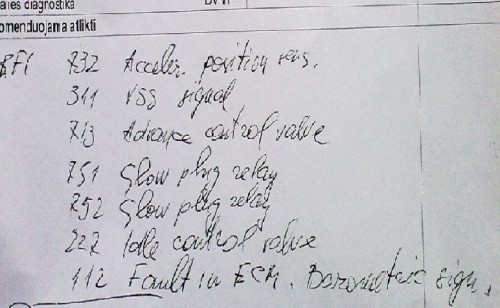 ales diagnostika
omenduojama atlikti
RF1 732 Acceler. position sens.
311 VSS signal
713 Advance control valve
751 Glow plug relay
752 Glow plug relay
222 Idle control valve
112 Fault in ECM. Barometric sign.